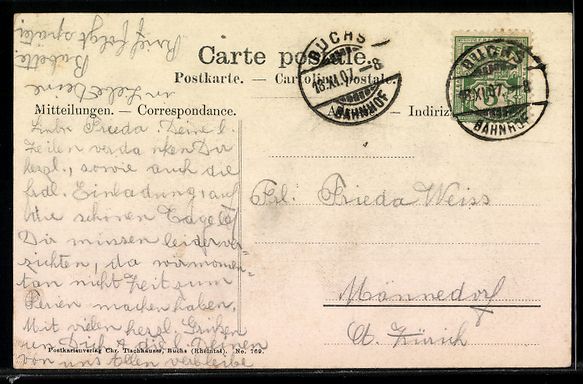 Carte postale.
Postkarte. — Cartolina postale.
Mittheilungen. — Correspondance.
Indiriz
BUCHS
18.XI.07.—8
BAHNHOF
BUCHS
18.XI.07.—8
BAHNHOF
5
Liebe Frieda Deine l.
Zeilen verdanken Dir
herzl., sowie auch die
frdl. Einladung, auf
schönen Tage
Dir müssen leider ver-
zichten, da wir momen-
tan nicht Zeit zum
Ferien machen haben.
Mit vielen herzl. Grüßen
an Dich & die l. Deinen
von uns Allen verbleibe
in Liebe Deine
Babette.
Brief folgt später
Frl. Frieda Weiss
Männedorf
Ct. Zürich
Postkartenverlag Chr. Tischhauser, Buchs (Rheintal). No. 769.